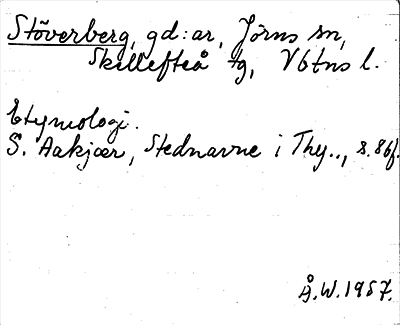 Stöverberg, gd:ar, Jörns sn,
Skellefteå tg, Vbtns l.
Etymologi.
S. Aakjær, Stednavne i Thy.., s. 86f.
Å.W. 1957.